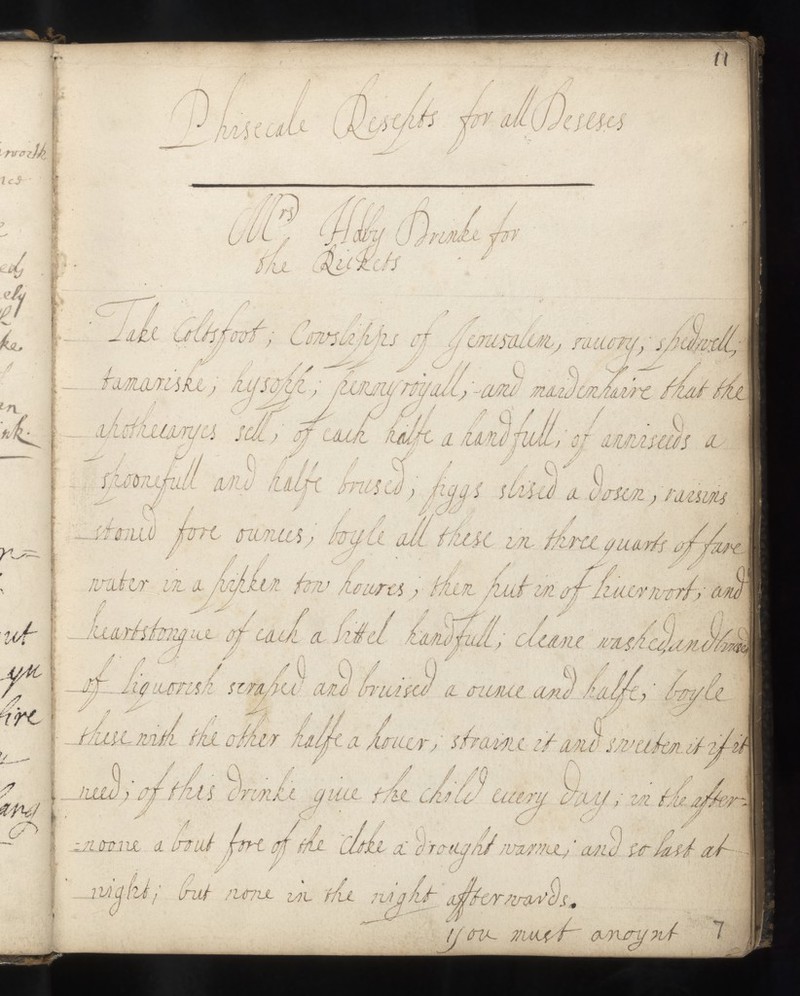 11
Phisecale Reseipts for all Deseses
Mrs Hoby Drinke for
the Rickets
Take Coltsfoot; Cowslipps of Jerusalem, sauory, spedwell;
tamariske; hysopp; pennyroyall; and maidenhaire that the
apothecaryes sell; of each halfe a handfull; of anniseeds a
spoonefull and halfe brused; figgs slised a dosen, raisins
stoned fore ounces; boyle all these in three quarts of fare
water in a pipken tow houres; then put in of liuerwort; and
heartstongue of each a littel handfull; cleane washed, and brused
of liquorish scraped and bruised a ounce and halfe; boyle
these with the other halfe a houer; straine it and sweeten it if it
need; of this drinke giue the child euery day; in the after=
=noone a bout fore of the cloke a drought warme; and so last at
night; but none in the night affterwards.
you must anoynt 7